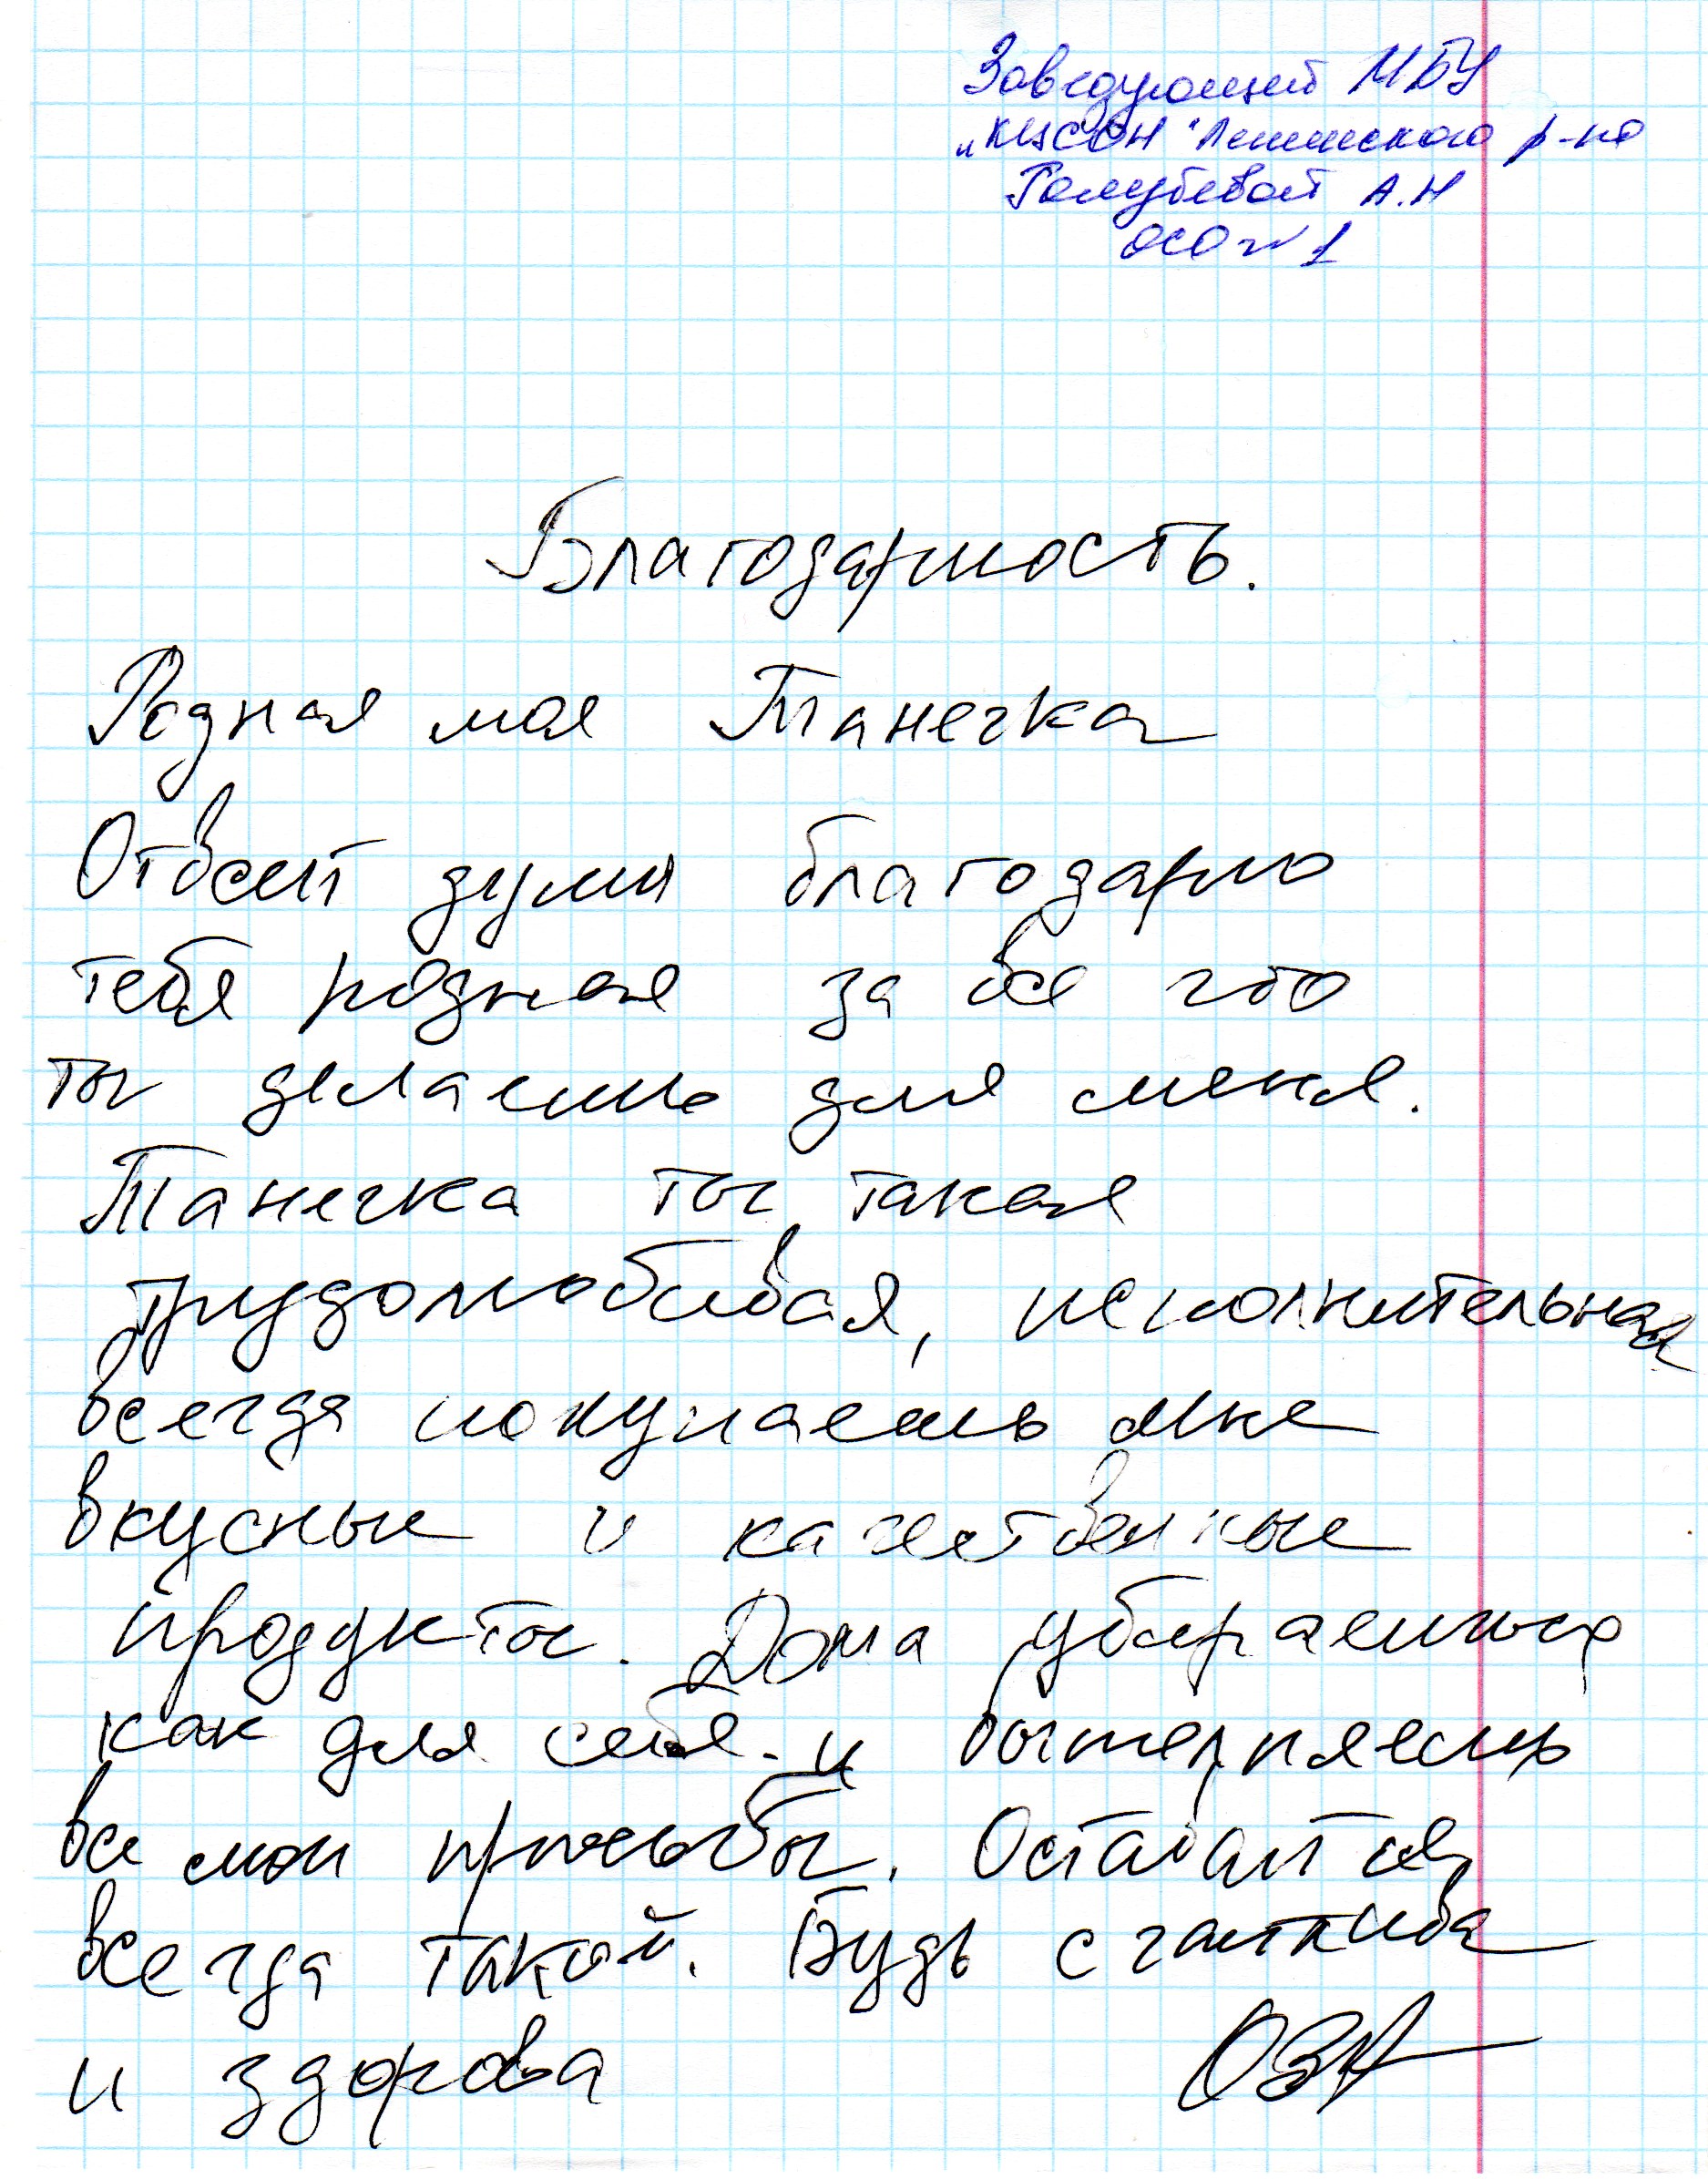 Заведующей МБУ
„КЦСОН" Ленинского р-на
Голубевой А.Н
ОСО № 1
Благодарность.
Родная моя Танечка
Отвсей души благодарю
тебя родная за все что
ты делаешь для меня.
Танечка ты такая
трудолюбивая, исполнительная
всегда покупаешь мне
вкусные и качественные
продукты. Дома убираешься
как для себя и вытерпляешь
все мои прозьбы. Оставайся
всегда такой. Будь счастлива
и здорова